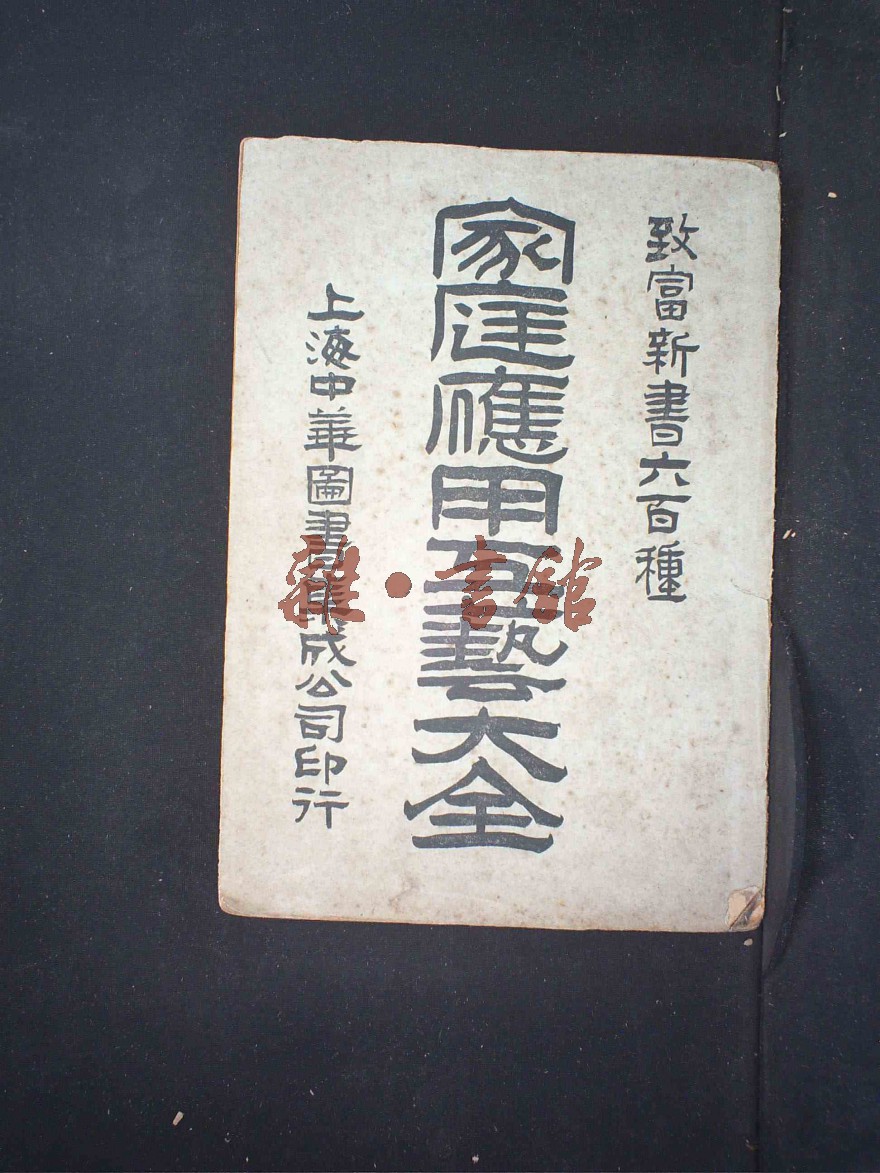 致富新書六百種
家庭應用百藝大全
上海中華圖書集成公司印行
雜·書館